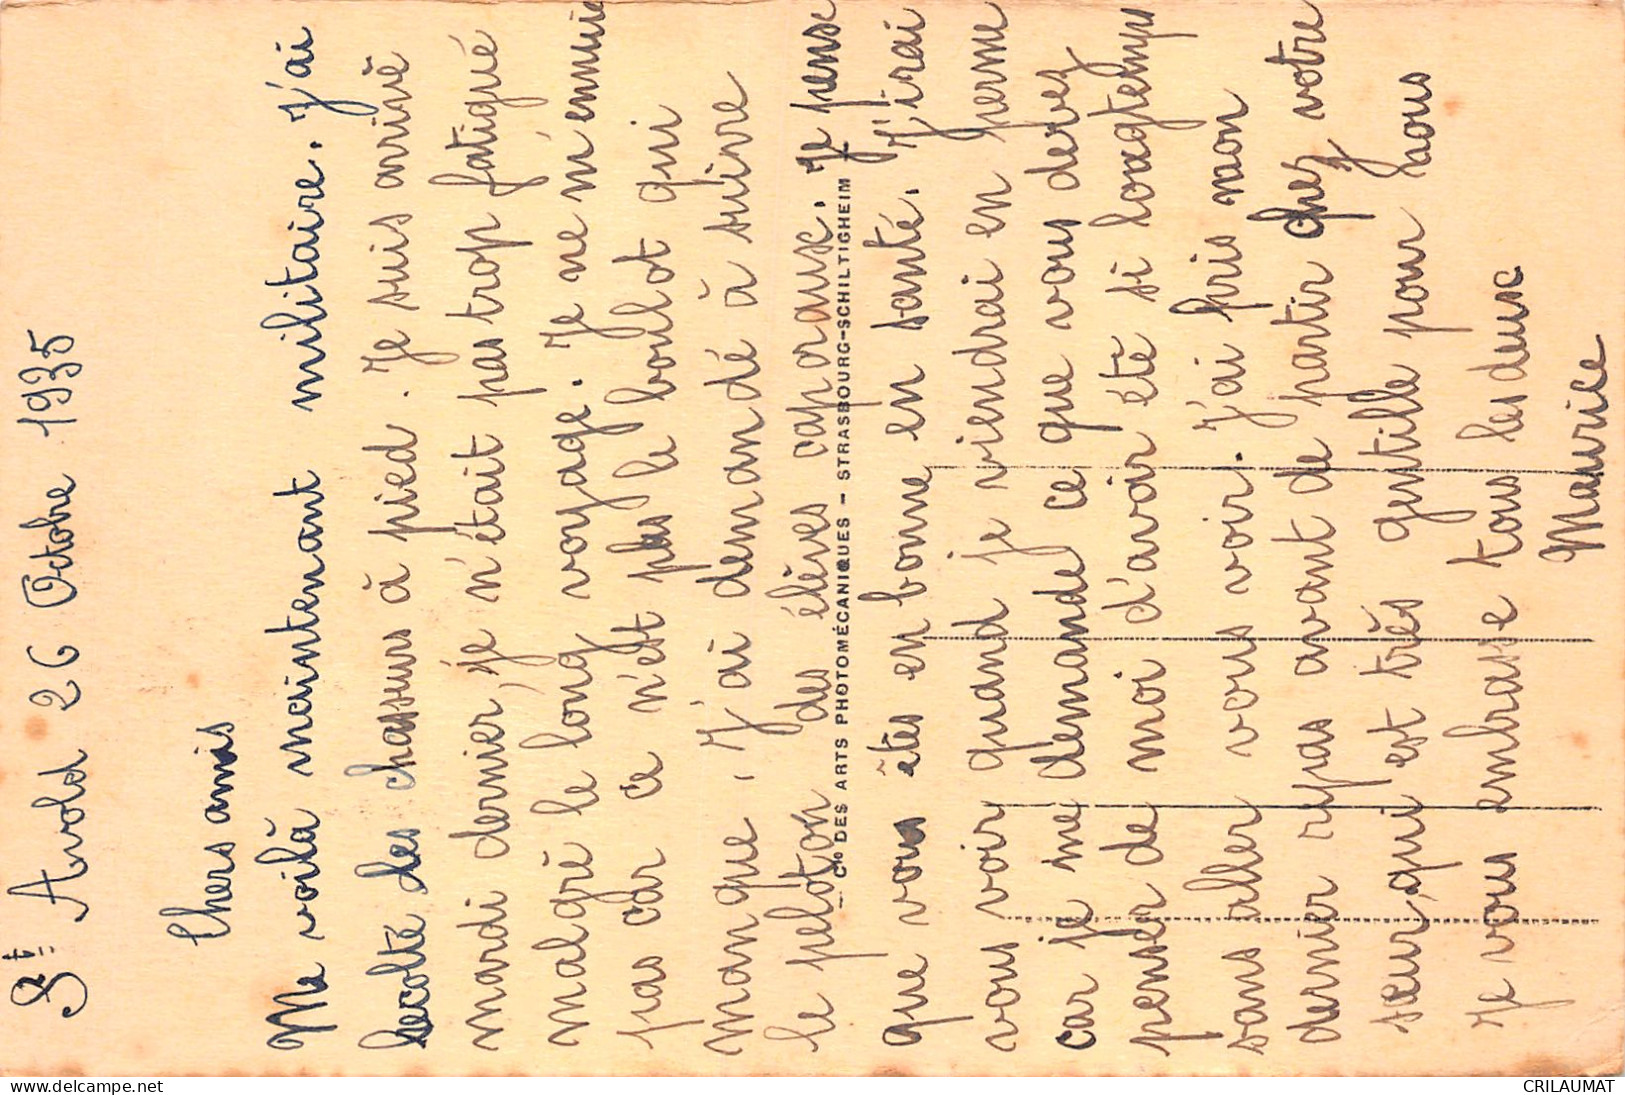 St Avold 26 Octobe 1935
Chers amis
Me voilà maintenant militaire. J'ai
recolté des chasseurs à pied. Je suis arrivé
mardi dernier, je n'était pas trop fatigué
malgré le long voyage. Je ne m'ennuie
pas car ce n'est pas le boulot qui
manque. J'ai demandé à suivre
le peloton des élèves caporaux. Je pense
Cie DES ARTS PHOTOMÉCANIQUES – STRASBOURG-SCHILTIGHEIM
que vous êtes en bonne en santé. J'irai
vous voir quand je viendrai en perme
car je me demande ce que vous devez
penser de moi d'avoir été si longtemps
sans aller vous voir. J'ai pris mon
dernier repas avant de partir chez votre
seur, qui est très gentille pour nous
Je vous embrasse tous les deux
Maurice
CRILAUMAT